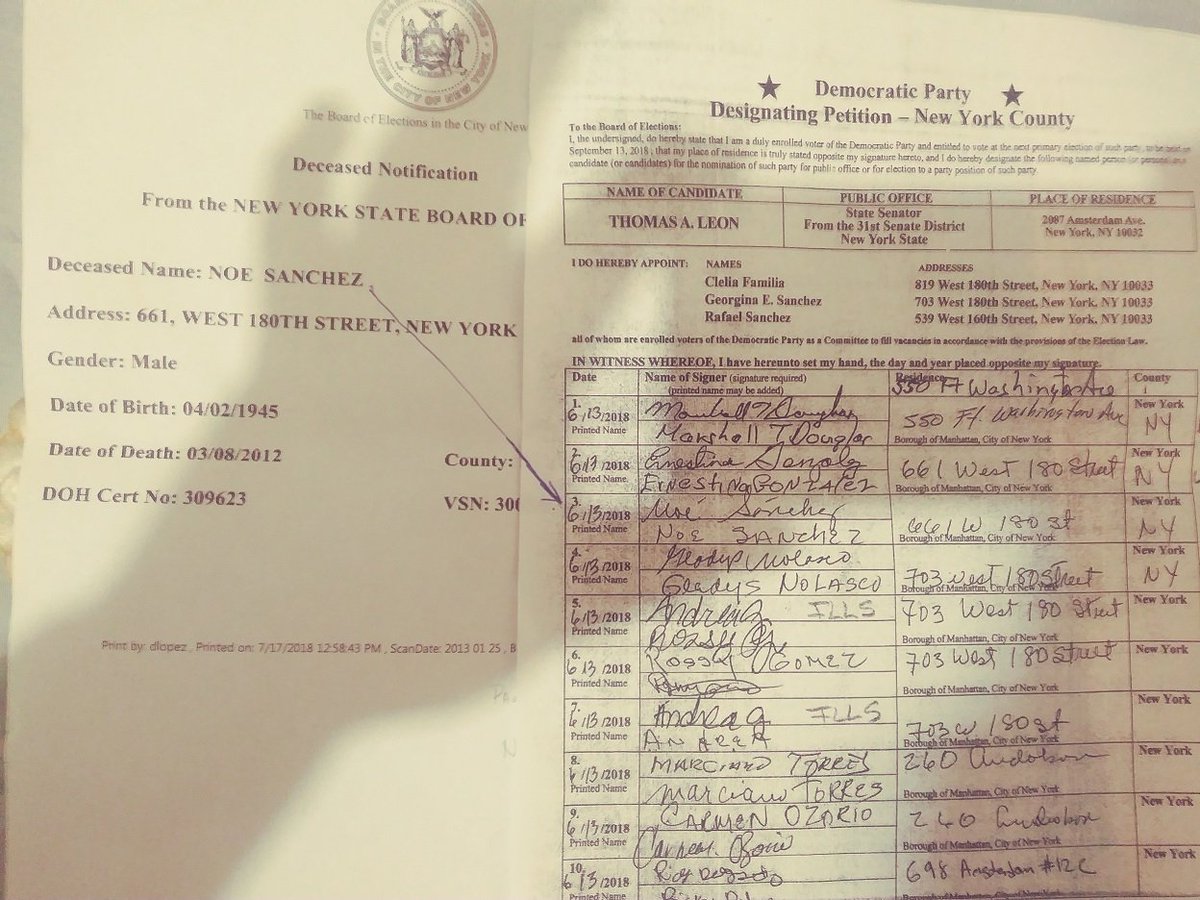 The Board of Elections in the City of New
Deceased Notification
From the NEW YORK STATE BOARD OF
Deceased Name: NOE SANCHEZ
Address: 661, WEST 180TH STREET, NEW YORK
Gender: Male
Date of Birth: 04/02/1945
Date of Death: 03/08/2012
County:
DOH Cert No: 309623
VSN: 300
Print by: dlopez , Printed on: 7/17/2018 12:58:43 PM , ScanDate: 2013 01 25 , B
Democratic Party
Designating Petition – New York County
To the Board of Elections:
I, the undersigned, do hereby state that I am a duly enrolled voter of the Democratic Party and entitled to vote at the next primary election of such party, to be held on
September 13, 2018; that my place of residence is truly stated opposite my signature hereto, and I do hereby designate the following named person (or persons) as a
candidate (or candidates) for the nomination of such party for public office or for election to a party position of such party.
NAME OF CANDIDATE PUBLIC OFFICE PLACE OF RESIDENCE
THOMAS A. LEON
State Senator
From the 31st Senate District
New York State
2087 Amsterdam Ave.
New York, NY 10032
I DO HEREBY APPOINT: NAMES ADDRESSES
Clelia Familia 819 West 180th Street, New York, NY 10033
Georgina E. Sanchez 703 West 180th Street, New York, NY 10033
Rafael Sanchez 539 West 160th Street, New York, NY 10033
all of whom are enrolled voters of the Democratic Party as a Committee to fill vacancies in accordance with the provisions of the Election Law.
IN WITNESS WHEREOF, I have hereunto set my hand, the day and year placed opposite my signature.
Date Name of Signer (signature required) Residence County
(printed name may be added)
550 Ft Washington Ave
1. New York
6/13/2018 550 Ft. Washington Ave NY
Printed Name Marshall T. Douglas Borough of Manhattan, City of New York
2. New York
6/13/2018 661 West 180 Street NY
Printed Name ERNESTINA GONZALEZ Borough of Manhattan, City of New York
3. New York
6/13/2018 Noé Sánchez 661 W 180 St NY
Printed Name NOE SANCHEZ Borough of Manhattan, City of New York
4. New York
6/13/2018 Gladys Nolasco 703 West 180 Street NY
Printed Name Gladys NOLASCO Borough of Manhattan, City of New York
5. New York
6/13/2018 ILLS 703 West 180 Street
Printed Name Borough of Manhattan, City of New York
6. New York
6/13/2018 GOMEZ 703 West 180 Street
Printed Name Borough of Manhattan, City of New York
7. New York
6/13/2018 Andrea ILLS 703 W 180 St
Printed Name Borough of Manhattan, City of New York
8. New York
6/13/2018 MARCIANO TORRES 260 Audubon
Printed Name Marciano TORRES Borough of Manhattan, City of New York
9. New York
6/13/2018 CARMEN OZORIO 260 Audubon
Printed Name Borough of Manhattan, City of New York
10. New York
6/13/2018 698 Amsterdam #12C
Printed Name Borough of Manhattan, City of New York